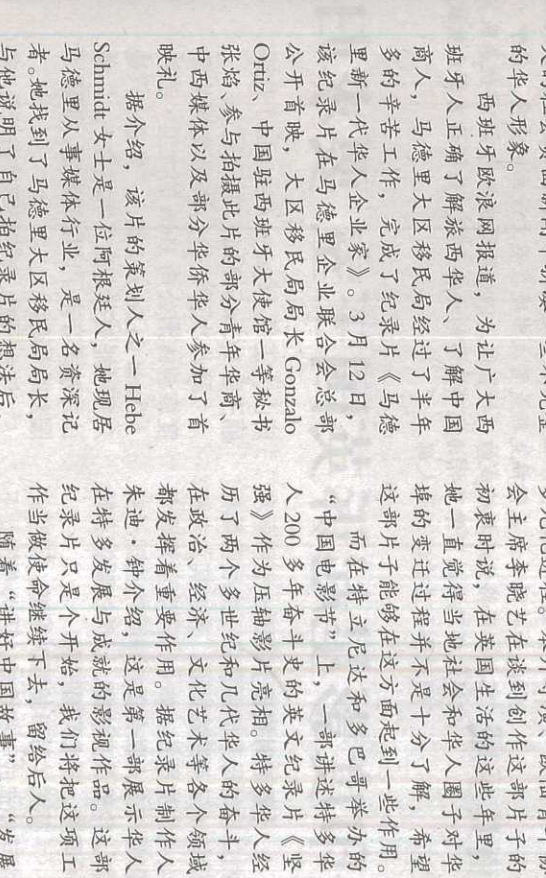 的华人形象。
西班牙欧浪网报道，为让广大西
班牙人正确了解旅西华人、了解中国
商人，马德里大区移民局经过了半年
多的辛苦工作，完成了纪录片《马德
里新一代华人企业家》。3月12日，
该纪录片在马德里企业联合会总部
公开首映，大区移民局局长 Gonzalo
Ortiz、中国驻西班牙大使馆一等秘书
张焰、参与拍摄此片的部分青年华商、
中西媒体以及部分华侨华人参加了首
映礼。
据介绍，该片的策划人之一 Hebe
Schmidt 女士是一位阿根廷人，她现居
马德里从事媒体行业，是一名资深记
者。她找到了马德里大区移民局局长，
与他说明了自己拍纪录片的想法后
会主席李晓艺在谈到创作这部片子的
初衷时说，在英国生活的这些年里，
她一直觉得当地社会和华人圈子对华
埠的变迁过程并不是十分了解，希望
这部片子能够在这方面起到一些作用。
而在特立尼达和多巴哥举办的
“中国电影节”上，一部讲述特多华
人 200 多年奋斗史的英文纪录片《坚
强》作为压轴影片亮相。特多华人经
历了两个多世纪和几代华人的奋斗，
在政治、经济、文化艺术等各个领域
都发挥着重要作用。据纪录片制作人
朱迪·钟介绍，这是第一部展示华人
在特多发展与成就的影视作品。这部
纪录片只是个开始，我们将把这项工
作当做使命继续下去，留给后人。
随着“讲好中国故事”“发展